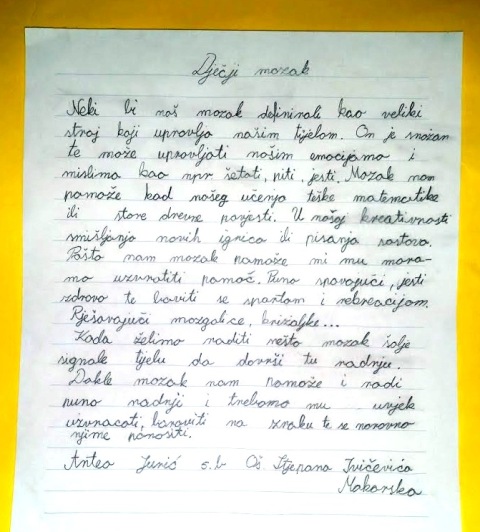 Dječji mozak
Neki bi naš mozak definirali kao veliki
stroj koji upravlja našim tijelom. On je snažan
te može upravljati našim emocijama i
mislima kao npr šetati, piti, jesti. Mozak nam
pomaže kad našeg učenja teške matematike
ili stare drevne povjesti. U našoj kreativnosti
smišljanja novih igrica ili pisanja sastava.
Pošto nam mozak pomaže mi mu mora-
mo uzvratiti pomoć. Puno spavajući, jesti
zdravo te baviti se sportom i rekreacijom.
Rješavajući mozgalice, križaljke...
Kada želimo raditi nešto mozak šalje
signale tijelu da dovrši tu radnju.
Dakle mozak nam pomaže i radi
puno radnji i trebamo mu uvjek
uzvraćati, boraviti na zraku te se naravno
njime ponositi.
Antea Jurić 5.b Oš. Stjepana Ivičevića
Makarska